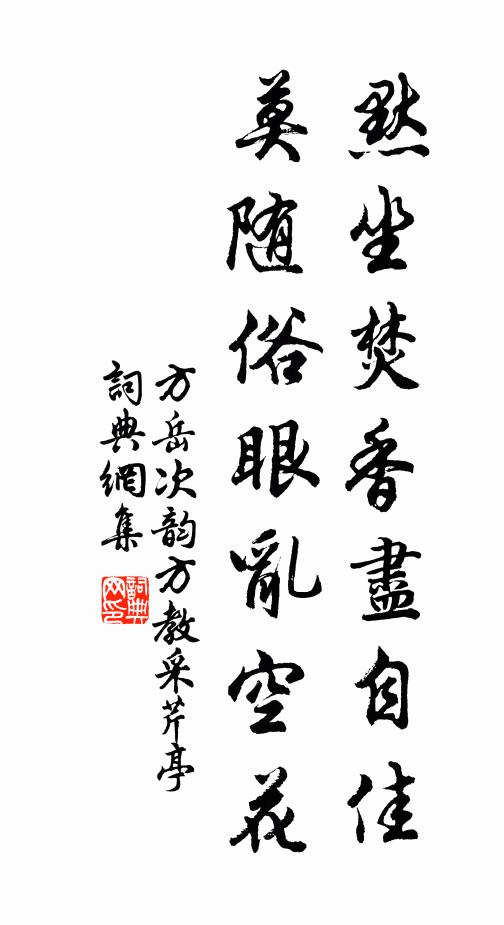 默坐焚香盡自佳
莫随俗眼亂空花
方岳次韵方教采芹亭
詞典網集
詞典网印